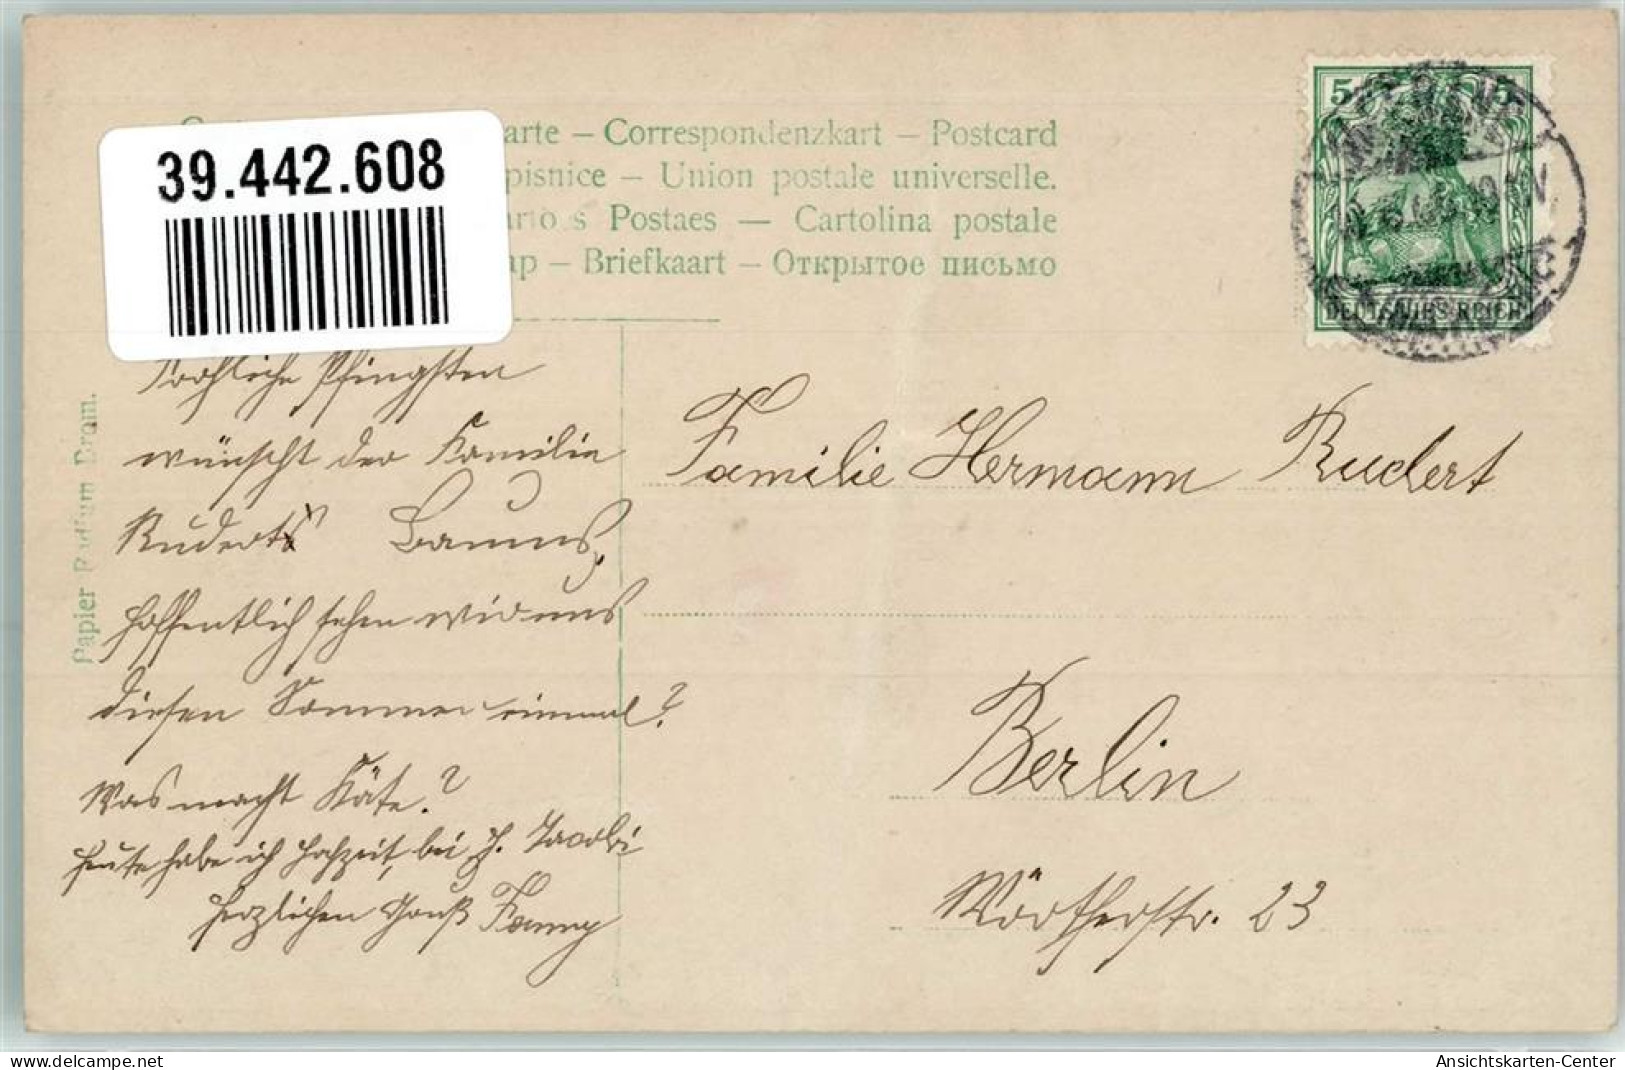 39.442.608
arte – Correspondenzkart – Postcard
pisnice – Union postale universelle.
Postaes — Cartolina postale
ap – Briefkaart – Открытое письмо
Papier Radium Brom.
5 5
DEUTSCHES REICH
Fröhliche Pfingsten
wünscht der Familie
Ruderts
hoffentlich sehen wir uns
diesen Sommer einmal?
Was macht Käte?
heute habe ich Hochzeit, bei J. Jacobi
Herzlichen Gruß Fanny
Familie Hermann Rudert
Berlin
Wörtherstr. 23
delcampe.net
Ansichtskarten-Center